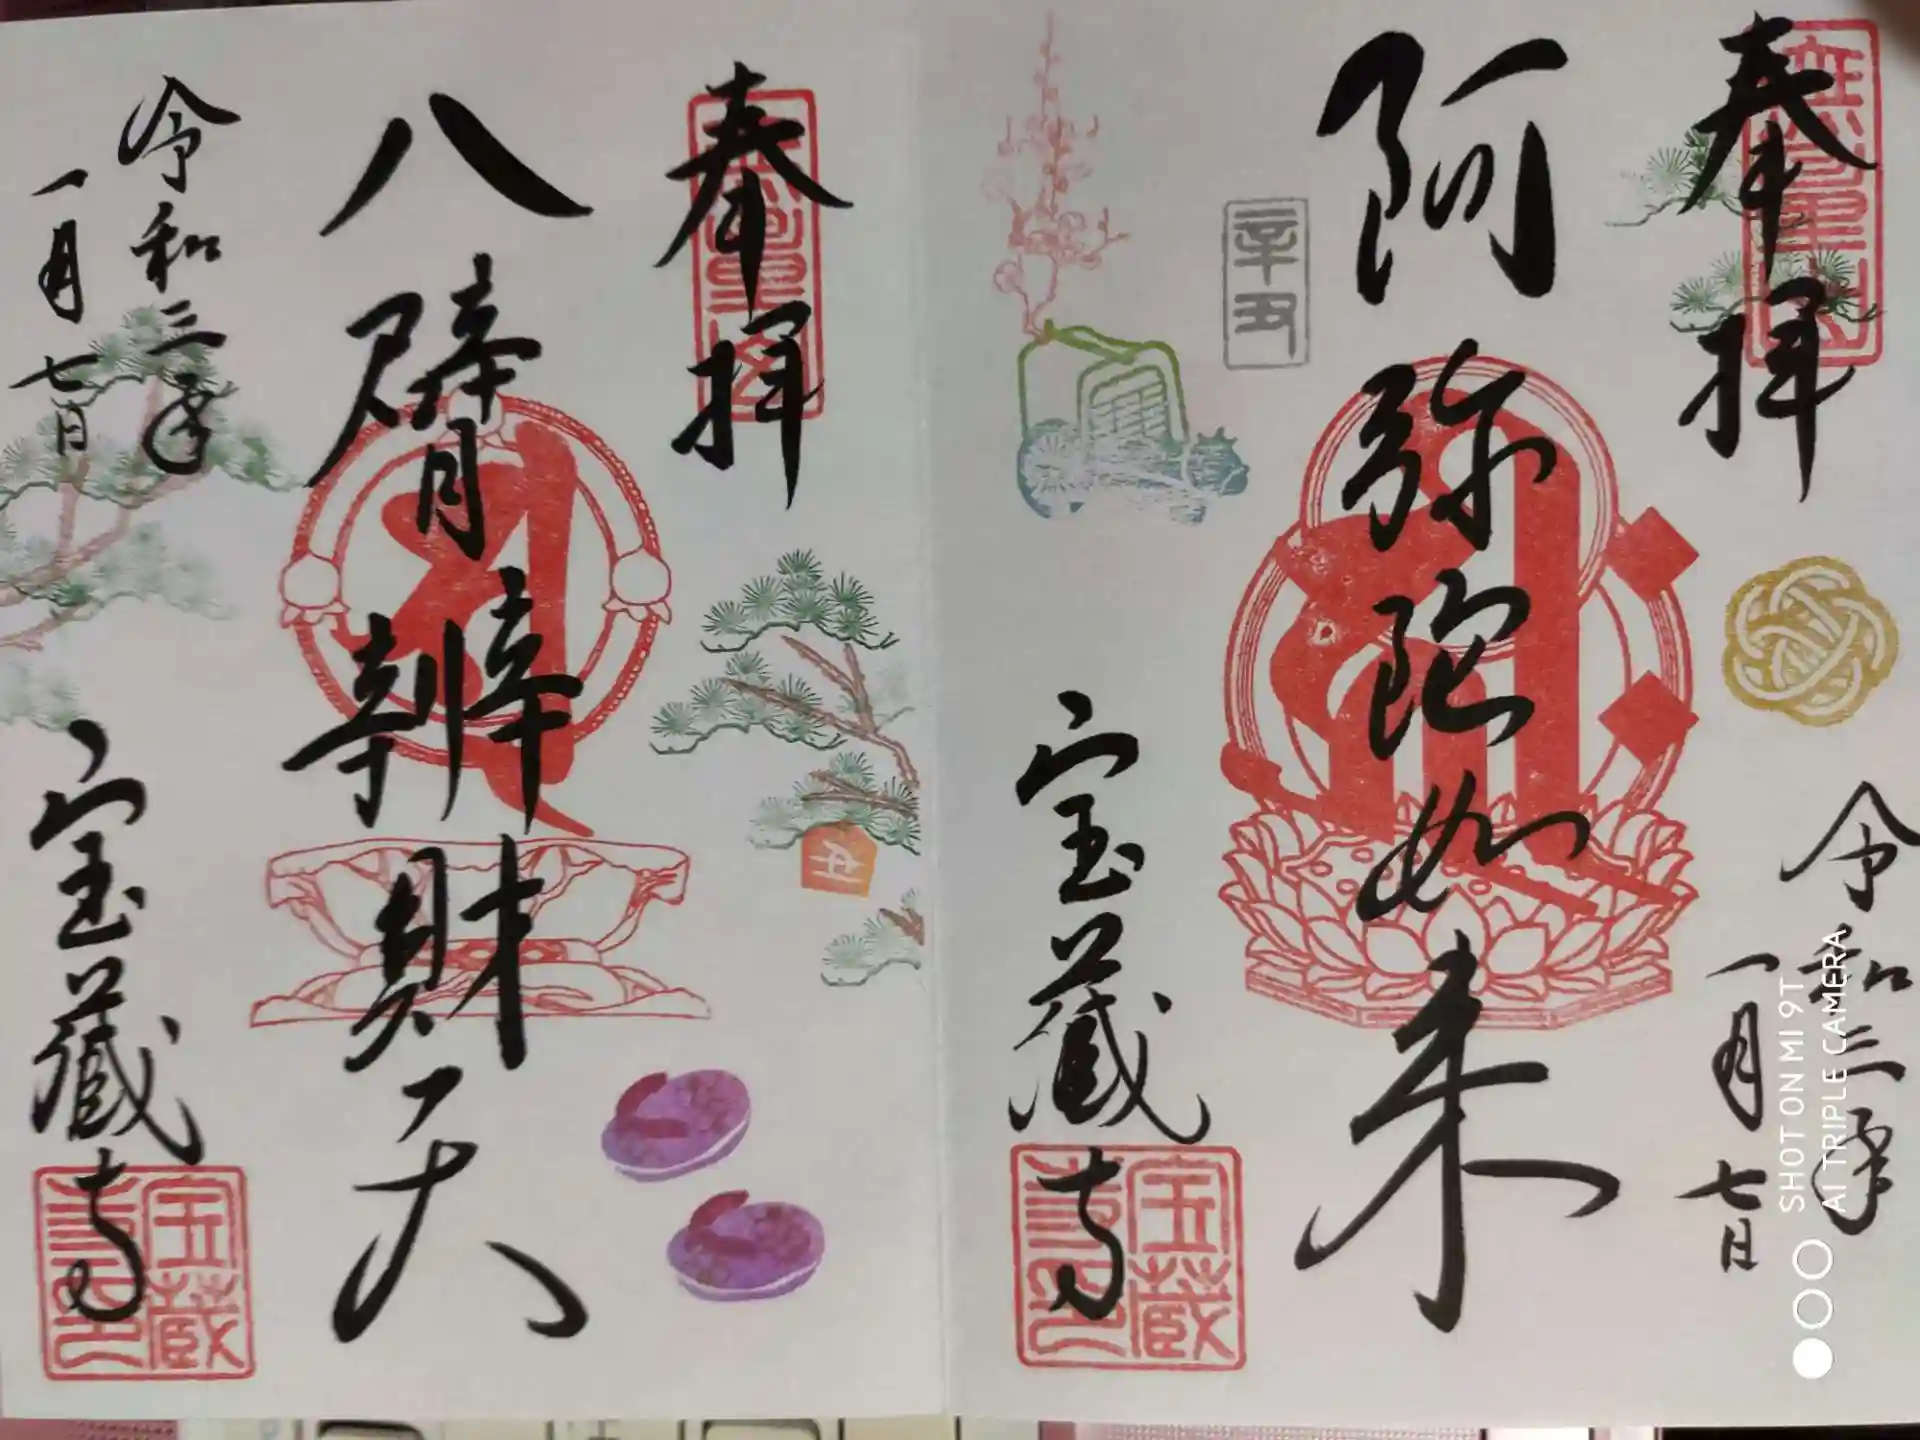 奉拝
阿弥陀如来
辛丑
宝蔵寺
宝蔵
令和三年
一月七日
奉拝
八臂辨財天
丑
令和三年
一月七日
宝蔵寺
宝蔵
SHOT ON MI 9T
AI TRIPLE CAMERA